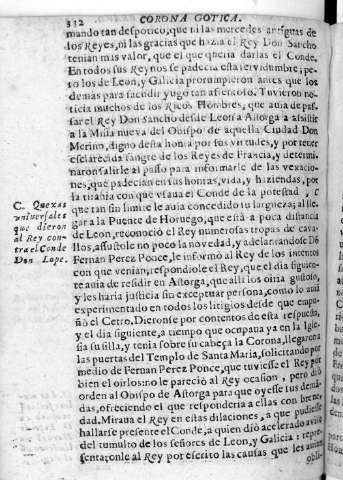 312 CORONA GOTICA.
mando tan despotico, que ni las mercedes antiguas de
los Reyes, ni las gracias que hazia el Rey Don Sancho
tenian mas valor, que el que queria darlas el Conde.
En todos sus Reynos se padecia esta servidumbre; pe-
ro los de Leon, y Galicia prorumpieron antes que los
demàs para sacudir yugo tan afrentoso. Tuvieron no-
ticia muchos de los Ricos Hombres, que auia de pas-
sar el Rey Don Sancho desde Leon à Astorga à assistir
à la Missa nueva del Obispo de aquella Ciudad Don
Merino, digno desta honra por sus virtudes, y por tener
esclarecida sangre de los Reyes de Francia, y determi-
naron salirle al passo para informarle de las vexacio-
nes, que padecian en sus honras, vidas, y haziendas, por
la tirania con que vsaua el Conde de la potestad,
que tan sin limite le auia concedido su largueza; al lle-
gar à la Puente de Horuego, que està à poca distancia
de Leon, reconociò el Rey numerosas tropas de cava-
llos, assustòle no poco la novedad, y adelantandose Dō
Fernan Perez Ponce, le informò al Rey de los intentos
con que venian, respondiòle el Rey, que el dia siguien-
te auia de residir en Astorga, que alli los oiria gustoso,
y les haria justicia sin exceptuar persona, como lo auia
experimentado en todos los litigios desde que empu-
ñò el Cetro. Dieronse por contentos de esta respuesta,
y el dia siguiente, à tiempo que ocupaua ya en la Igle-
sia su silla, y tenia sobre su cabeça la Corona, llegaron à
las puertas del Templo de Santa Maria, solicitando por
medio de Fernan Perez Ponce, que tuviesse el Rey por
bien el oirlos: no le pareciò al Rey ocasion, pero diò
orden al Obispo de Astorga para que oyesse sus deman-
das, ofreciendo el que responderia à ellas con breve-
dad. Miraua el Rey en estas dilaciones, à que pudiesse
hallarse presente el Conde, à quien diò acelerado aviso
del tumulto de los señores de Leon, y Galicia: repre-
sentaronle al Rey por escrito las causas que les
C. Quexas
vniversales
que dieron
al Rey con
tra el Conde
Don Lope.